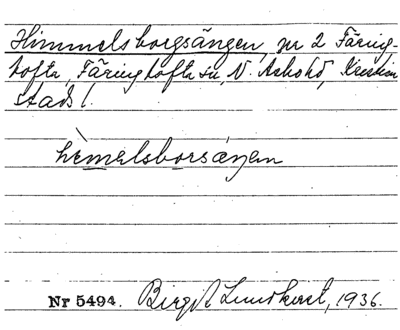 Himmelsborgsängen, nr 2 Färing-
tofta, Färingtofta sn, N. Åsbo hd, Kristian
stads l.
hìmelsborsäŋen
Nr 5494. Birgit Lundkvist, 1936.